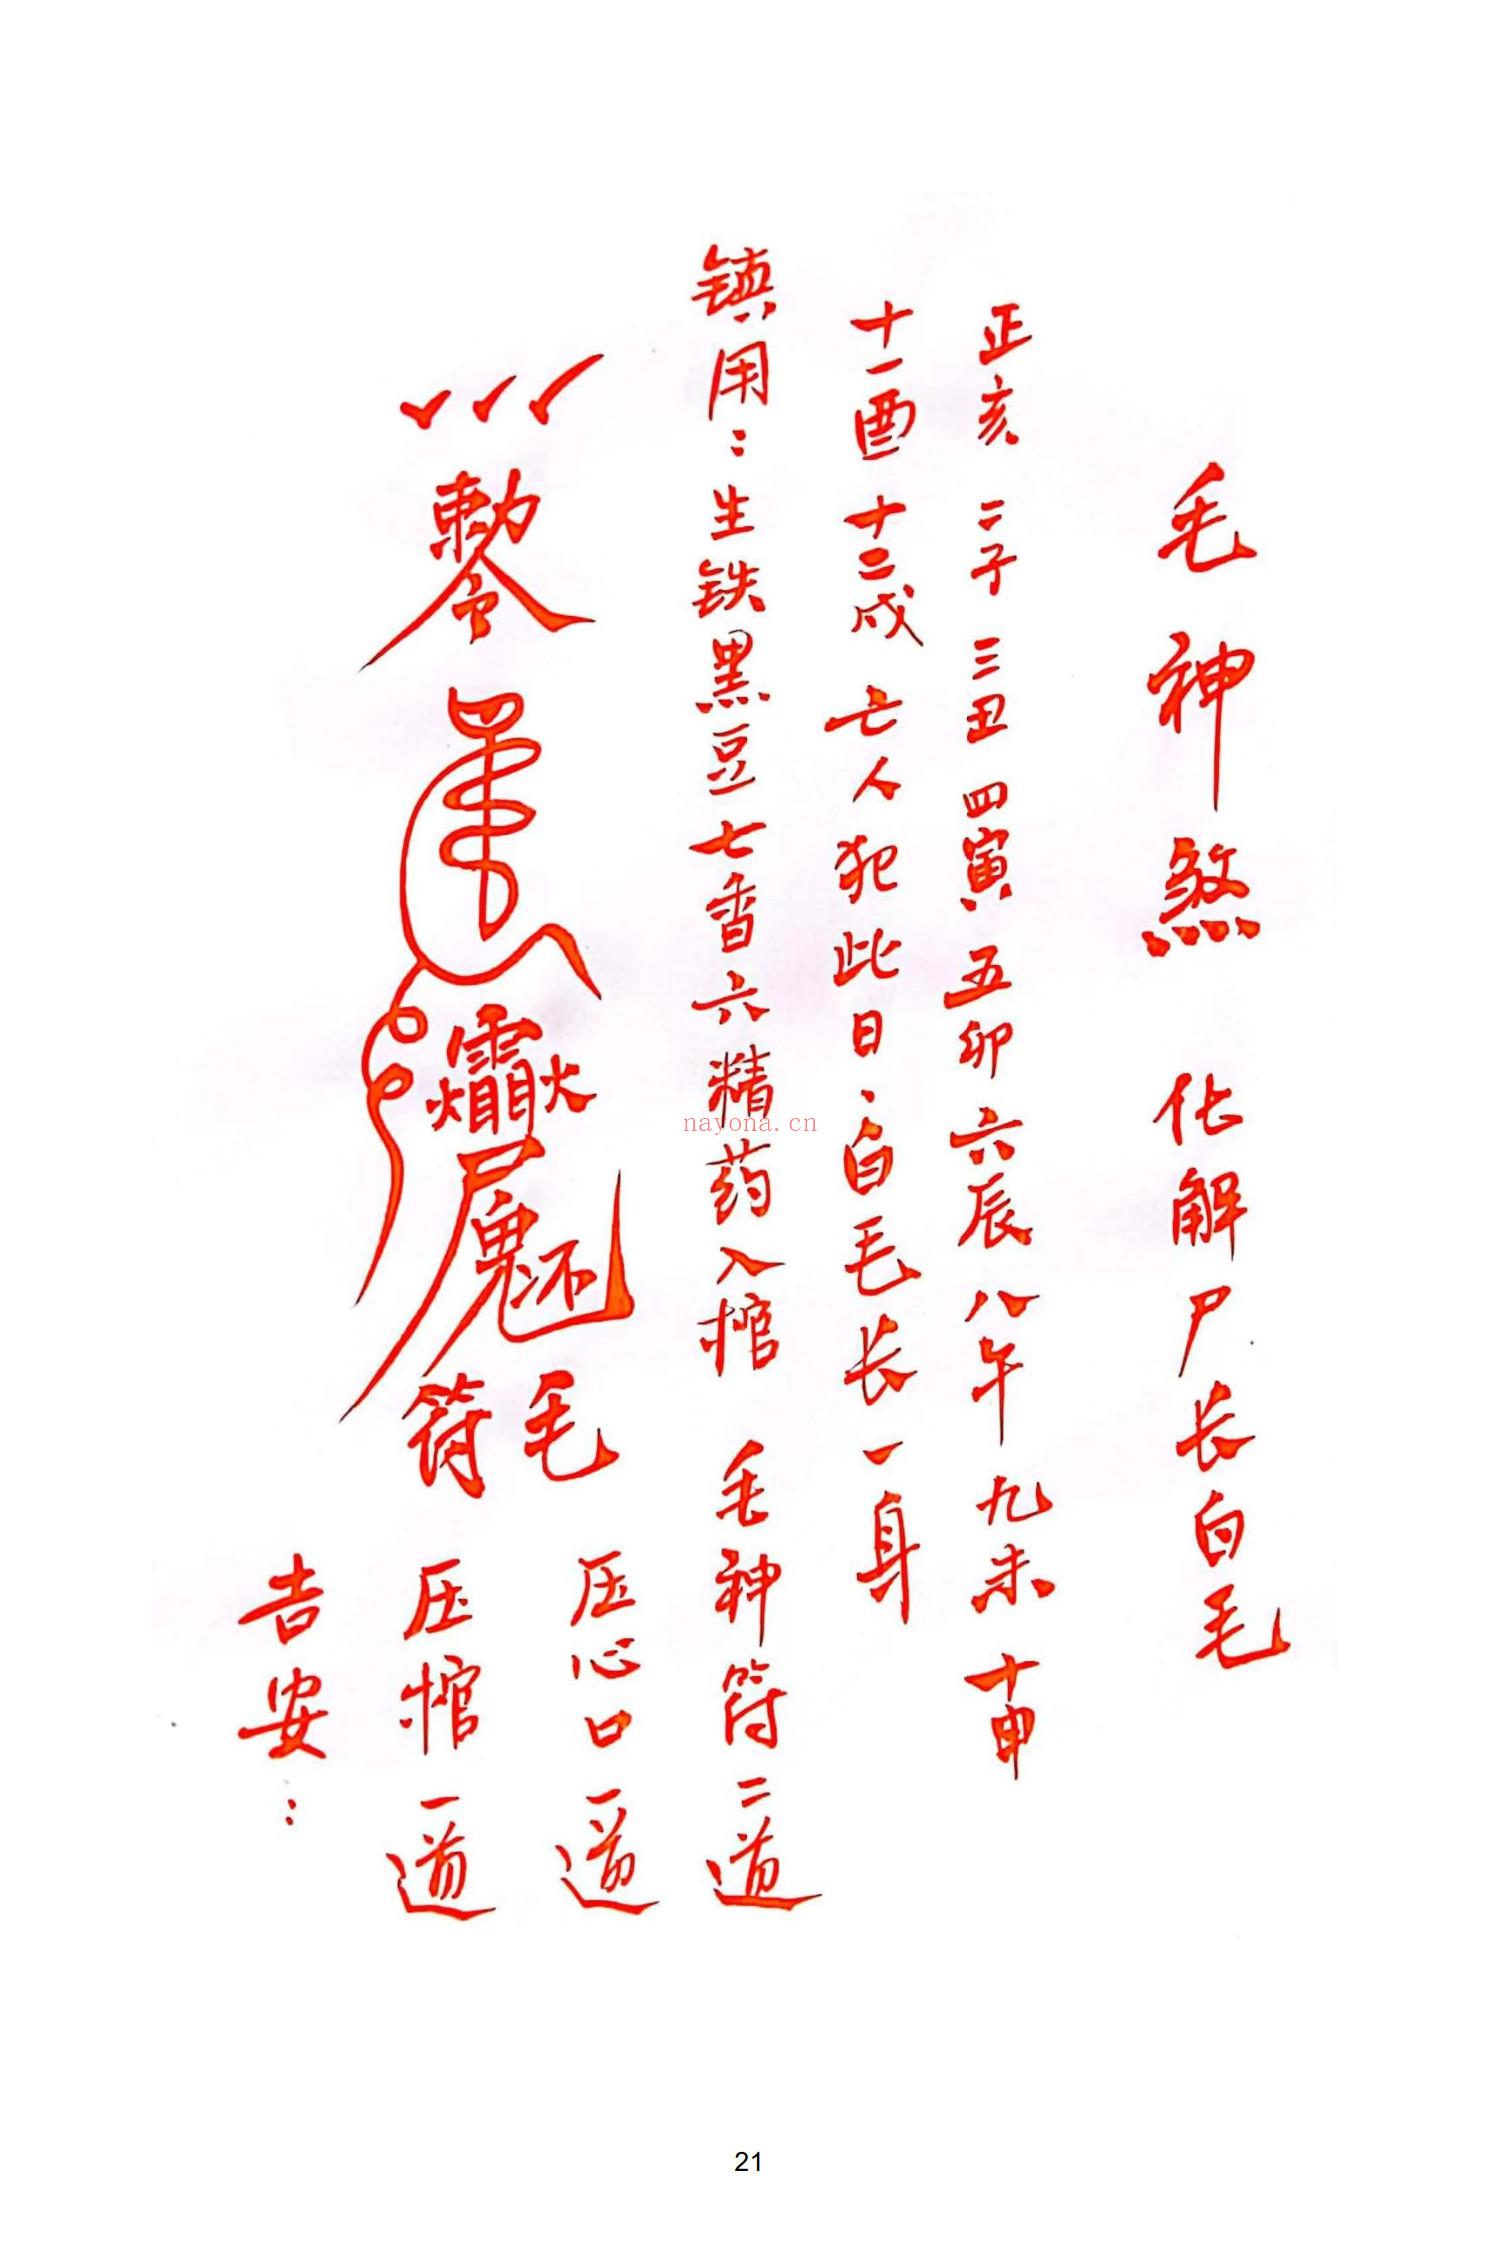 毛神煞 化解尸长白毛
正亥 二子 三丑 四寅 五卯 六辰 八午 九未 十申
十一酉 十二戌 亡人犯此日、白毛长一身
镇用：生铁黑豆七香六精药入棺 毛神符二道
压心口一道
敕令
毛符
压棺一道
吉安：
nayona.cn
21